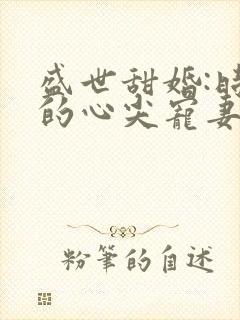 盛世甜婚:
的心尖宠妻
粉筆的自述